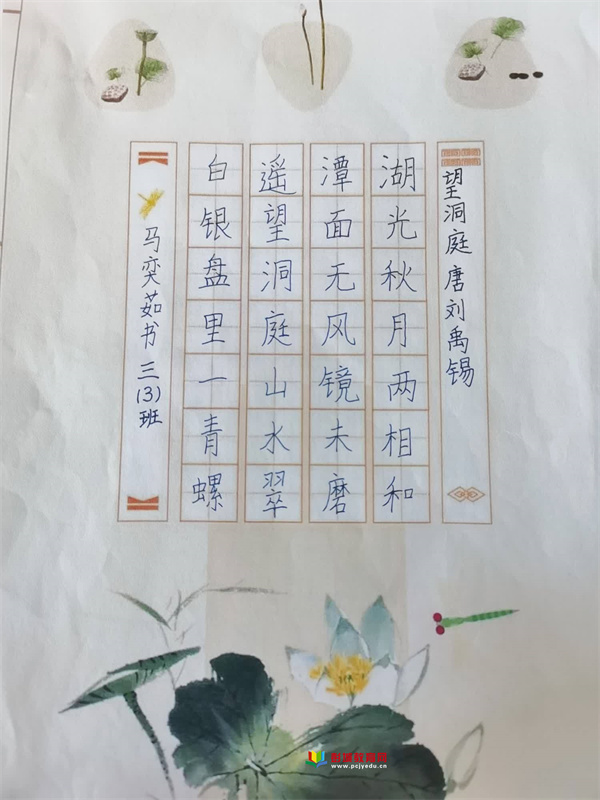 望洞庭唐刘禹锡
湖光秋月两相和
潭面无风镜未磨
遥望洞庭山水翠
白银盘里一青螺
马奕茹书三(3)班
www.pcjyedu.cn